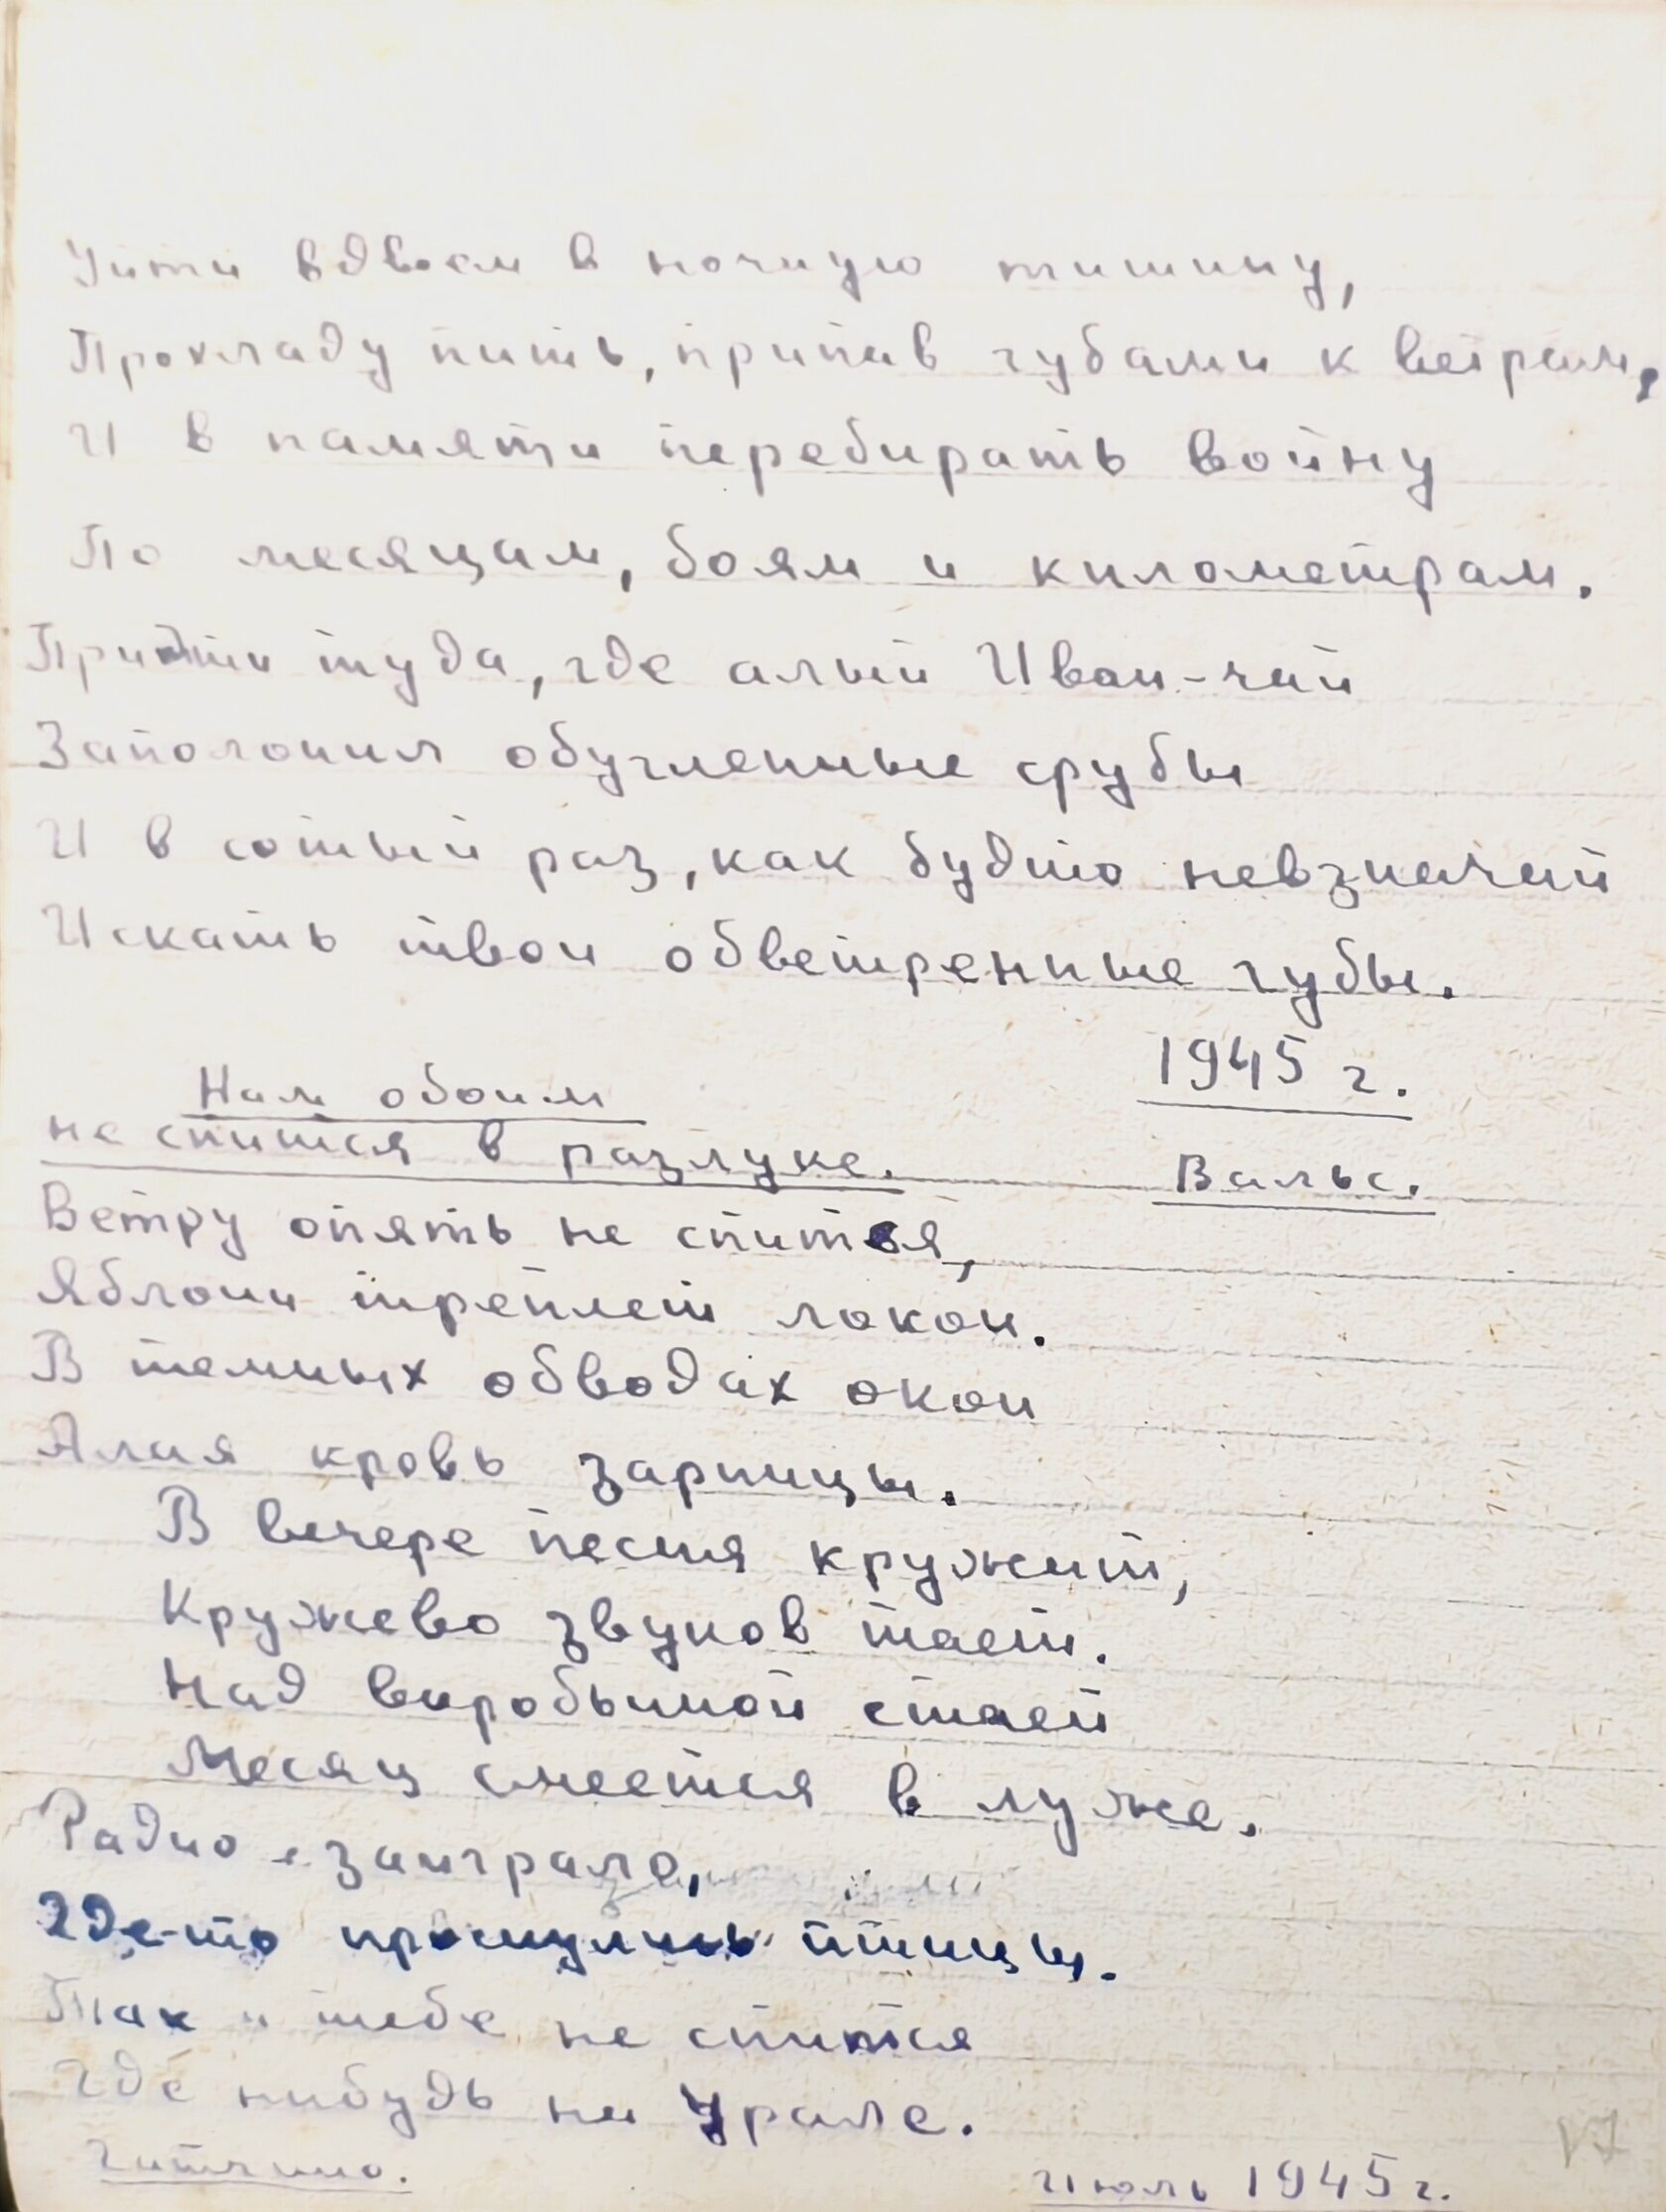 Уйти вдвоем в ночную тишину,
Прохладу пить, припав губами к ветрам,
И в памяти перебирать войну
По месяцам, боям и километрам.
Прийти туда, где алый Иван-чай
Заполонил обугленные срубы
И в сотый раз, как будто невзначай
Искать твои обветренные губы.
1945 г.
Нам обоим
не спится в разлуке.
Вальс.
Ветру опять не спится,
Яблони треплет локон.
В темных обводах окон
Алая кровь зарницы.
В вечере песня кружит,
Кружево звуков тает.
Над воробьиной стаей
Месяц смеется в луже.
Радио заиграло,
Где-то проснулись птицы.
Так и тебе не спится
Где нибудь на Урале.
Гатчино.
Июль 1945 г.